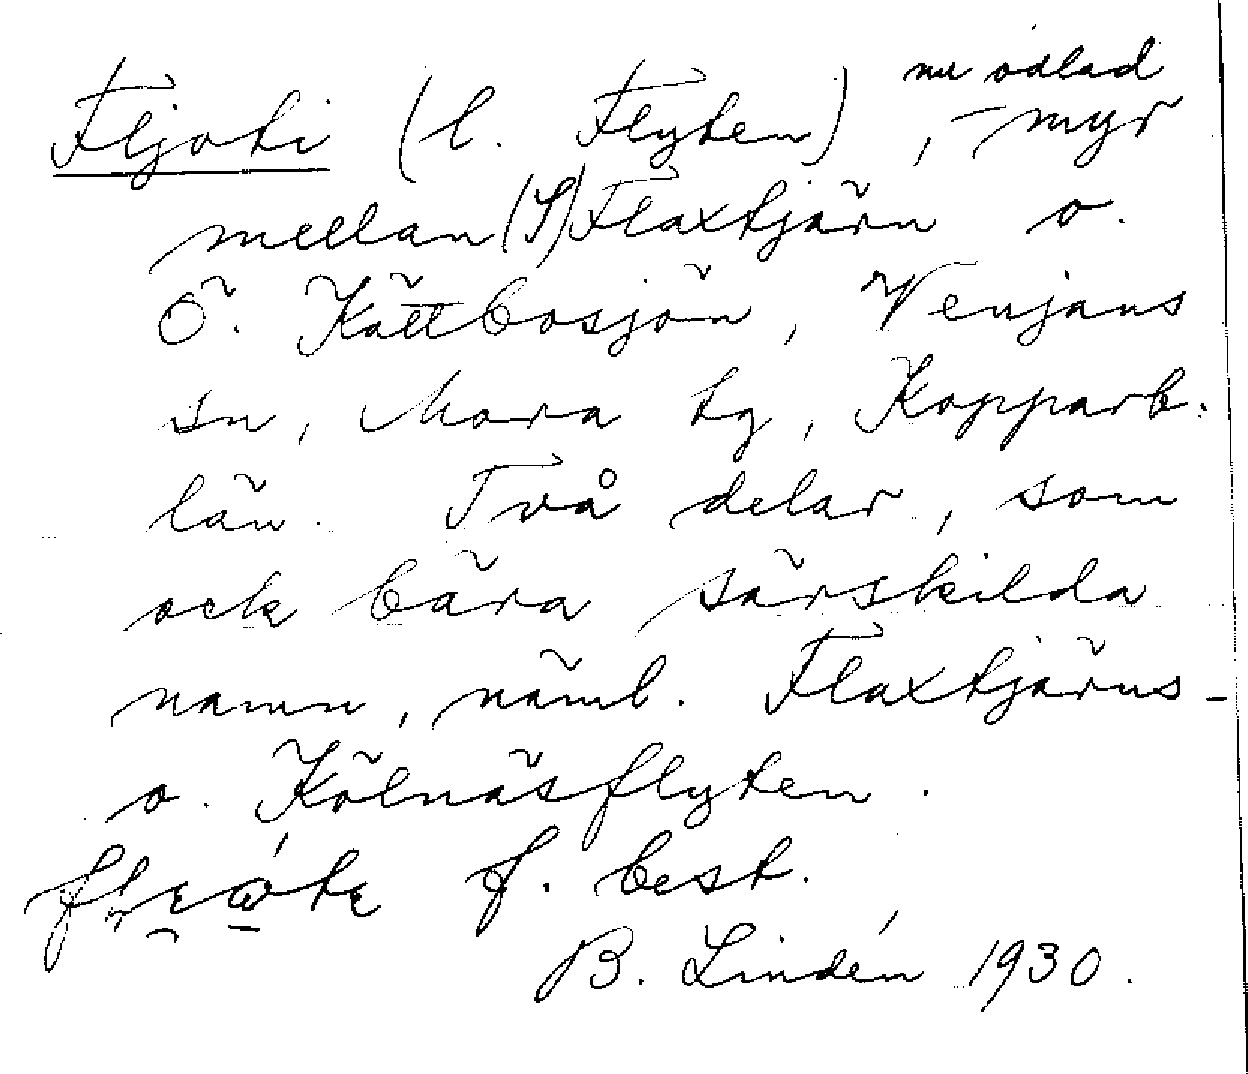 Fljoti (l. Flyten), nu odlad myr
mellan (S) Flaxtjärn o.
Ö. Kättbosjön, Venjans
sn, Mora tg, Kopparb.
län. Två delar, som
ock bära särskilda
namn, näml. Flaxtjärns-
o. Kölnäsflyten.
f. best.
B. Lindén 1930.